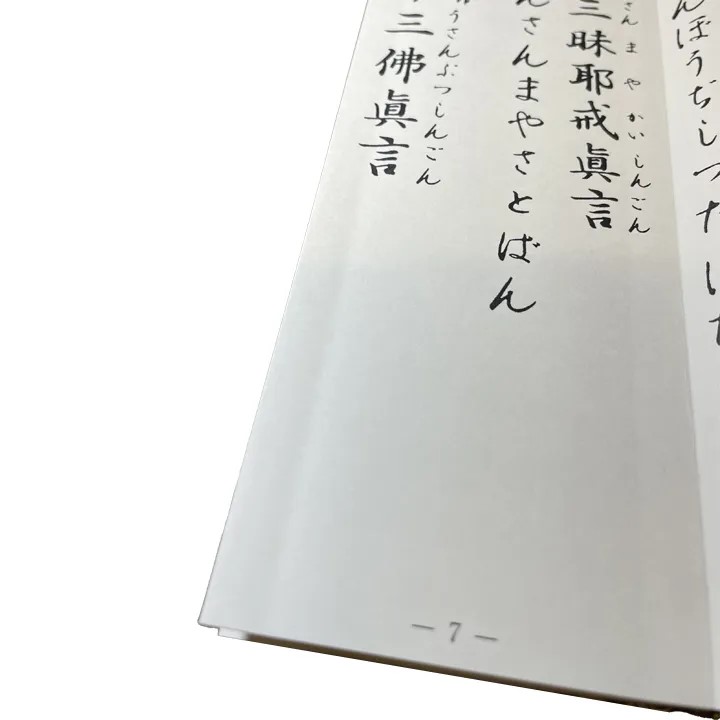 んぼうぢしつた
さんまやかいしんごん
三昧耶戒眞言
んさんまやさとばん
うさんぶつしんごん
三佛眞言
— 7 —